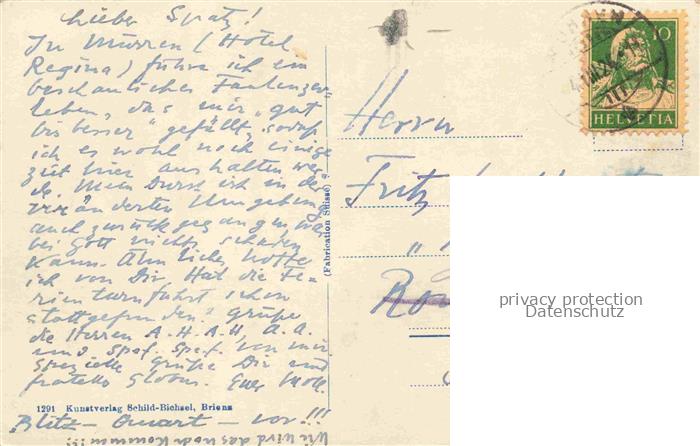 Lieber Spatz!
In Mürren (Hotel
Regina) führe ich ein
beschauliches Faulenzer-
leben, das mir „gut
bis besser" gefällt, sodaß
ich es wohl noch einige
Zeit hier aushalten wer-
de. Mein Durst ist in der
veränderten Umgebung
auch zurückgegangen, was
bei Gott nichts schaden
kann. Ähnliches hoffe
ich von Dir. Hat die Fe-
rienturnfahrt schon
stattgefunden? Grüße
die Herren A.H. A.H. a.a.
und Spef. Spef. von mir.
Spezielle Grüße Dir und
fratello Globus. Euer
1291 Kunstverlag Schild-Bichsel, Brienz
Blitz – Quart – vor!!!
Wie wird das noch kommen!!!
(Fabrication Suisse)
10
HELVETIA
Herrn
Fritz
privacy protection
Datenschutz